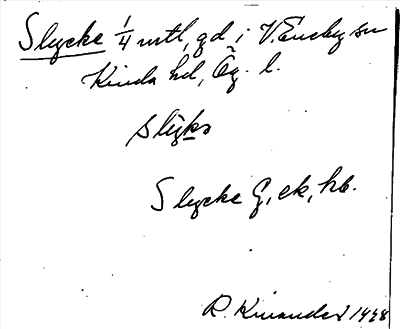 Slycke 1/4 mtl, gd i V. Eneby sn
Kinda hd, Ög. l.
slyks
Slycke G, ek, kb.
R. Kinander 1928